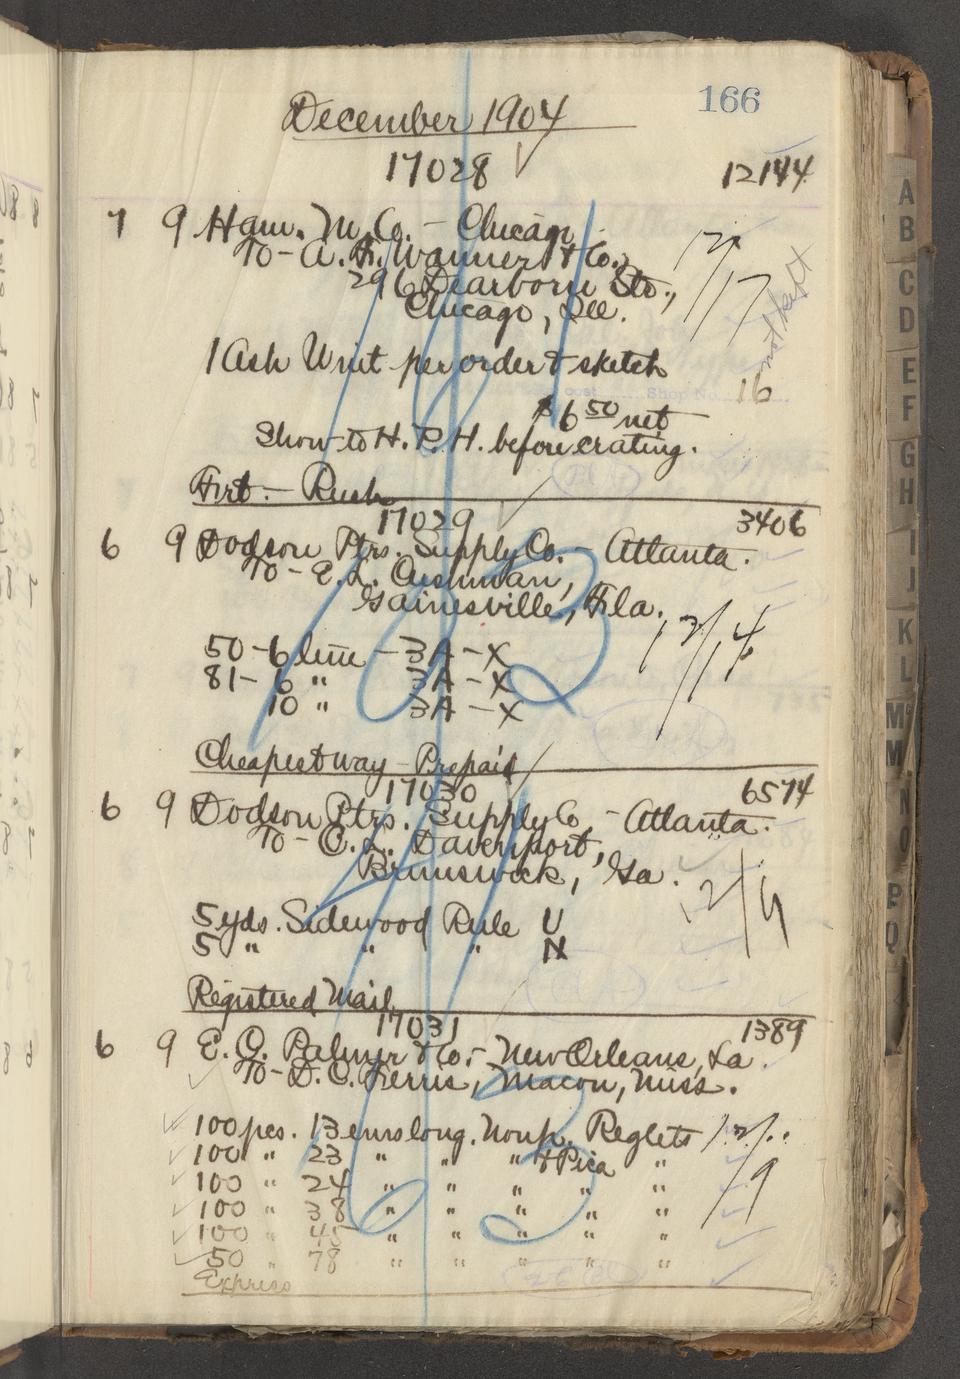 166
December 1904
17028 12144
7 9 Ham. M. Co. - Chicago
To - A. F. Wanner & Co.,
296 Dearborn St.,
Chicago, Ill.
12/17
not kept
1 Ash Unit per order & sketch
cost Shop No. 16
$6 50 net
Show to H. R. H. before crating.
Frt. - Rush
17029 3406
6 9 Dodson Ptrs. Supply Co. - Atlanta.
To - E. L. Cushman,
Gainesville, Fla.
12/14
50 - 6 line - 3A - X
81 - 6 " 3A - X
10 " 3A - X
Cheapest way - Prepaid
17030 6574
6 9 Dodson Ptrs. Supply Co. - Atlanta.
To - C. L. Davenport,
Brunswick, Ga.
12/9
5 yds. Sidewood Rule U
5 " " " N
Registered Mail
17031 1389
6 9 E. O. Palmer & Co. - New Orleans, La.
To - D. C. Ferris, Macon, Miss.
100 pcs. 13 ems long. Nonp. Reglets 12/9
100 " 23 " " " & Pica "
100 " 24 " " " " "
100 " 38 " " " " "
100 " 45 " " " " "
50 " 78 " " " " "
Express
A
B
C
D
E
F
G
H
I
J
K
L
M
M
N
O
P
Q